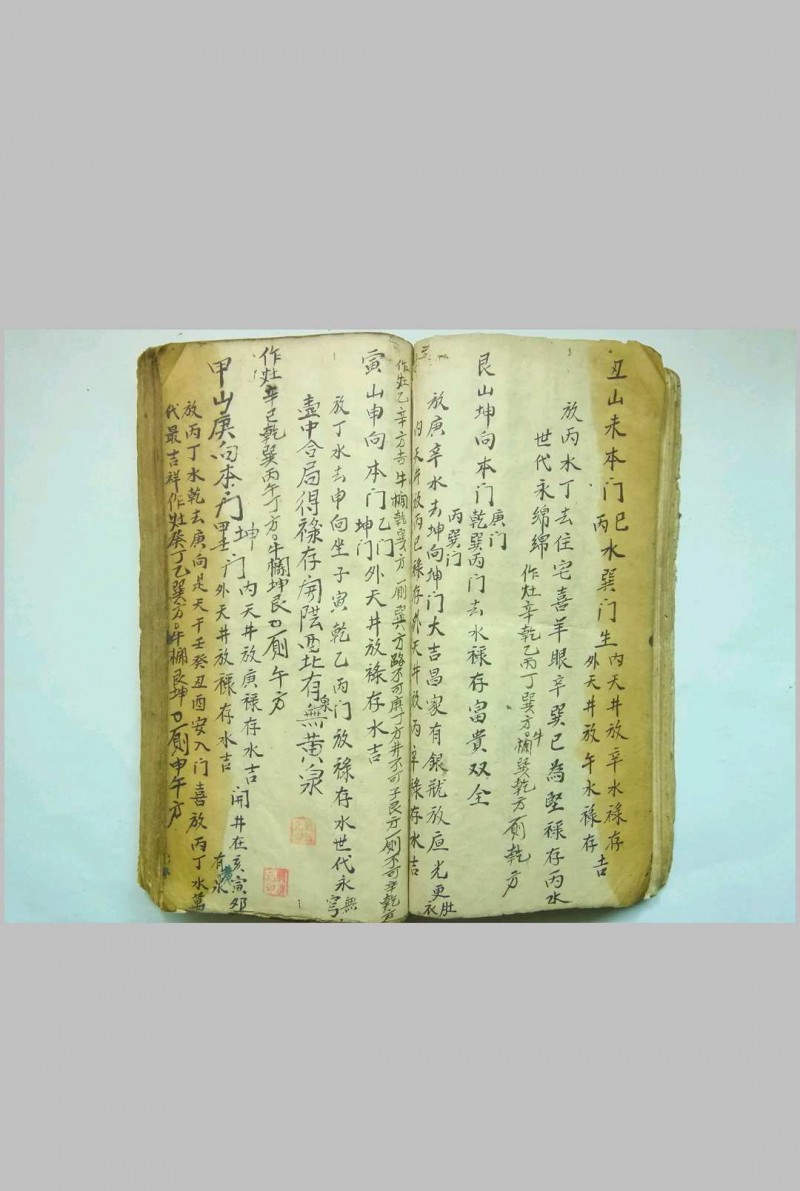 丑山未本门巳丙水巽门生
内天井放辛水禄存
外天井放午水禄存吉
放丙水丁去住宅喜羊眼辛巽巳為堅禄存丙水
世代永綿綿
作灶辛乾乙丙丁巽方牛欄巽乾方厠乾方
艮山坤向本门乾巽丙门去水禄存富貴双全
庚门
丙巽门
放庚辛水去坤向坤门大吉昌家有銀瓶放
光更
内天井放丙巳禄存外天井放丙辛禄存水吉
作灶乙辛方吉牛欄乾巽方厠巽方路不可庚丁方井不可子艮方厠不可辛乾方
寅山申向本门乙门外天井放禄存水吉
坤门
放丁水去申向坐子寅乾乙丙门放禄存水世代永無穹
壼中合局得禄存開陰西北有泉無黄泉
作灶辛巳乾巽丙午丁方牛欄坤艮方厠午方
甲山庚向本门
坤门内天井放庚禄存水吉開井在亥寅卯有水
外天井放禄存水吉
放丙丁水乾去庚向是天干壬癸丑酉安入门喜放丙丁水萬
代最吉祥作灶癸丁乙巽方牛欄艮坤方厠申午方